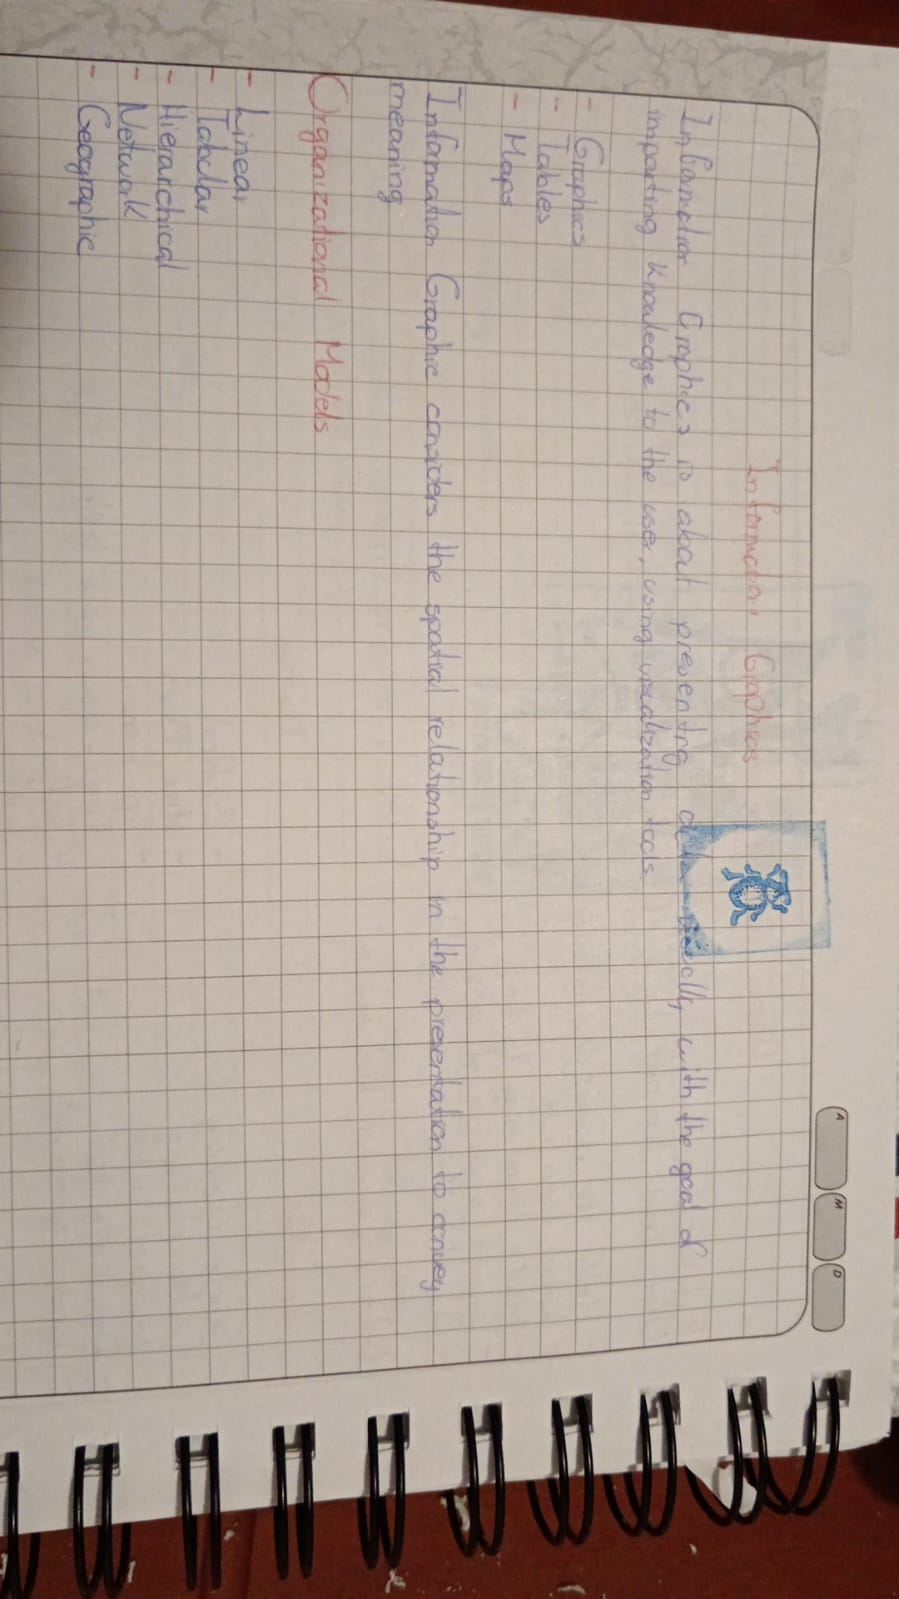 Information Graphics
Information Graphics is about presenting with the goal of
imparting Knowledge to the user, using visualization tools.
- Graphics
- Tables
- Maps
Information Graphic considers the spatial relationship in the presentation to convey
meaning
Organizational Models
- Linear
- Tabular
- Hierarchical
- Network
- Geographic
A M D